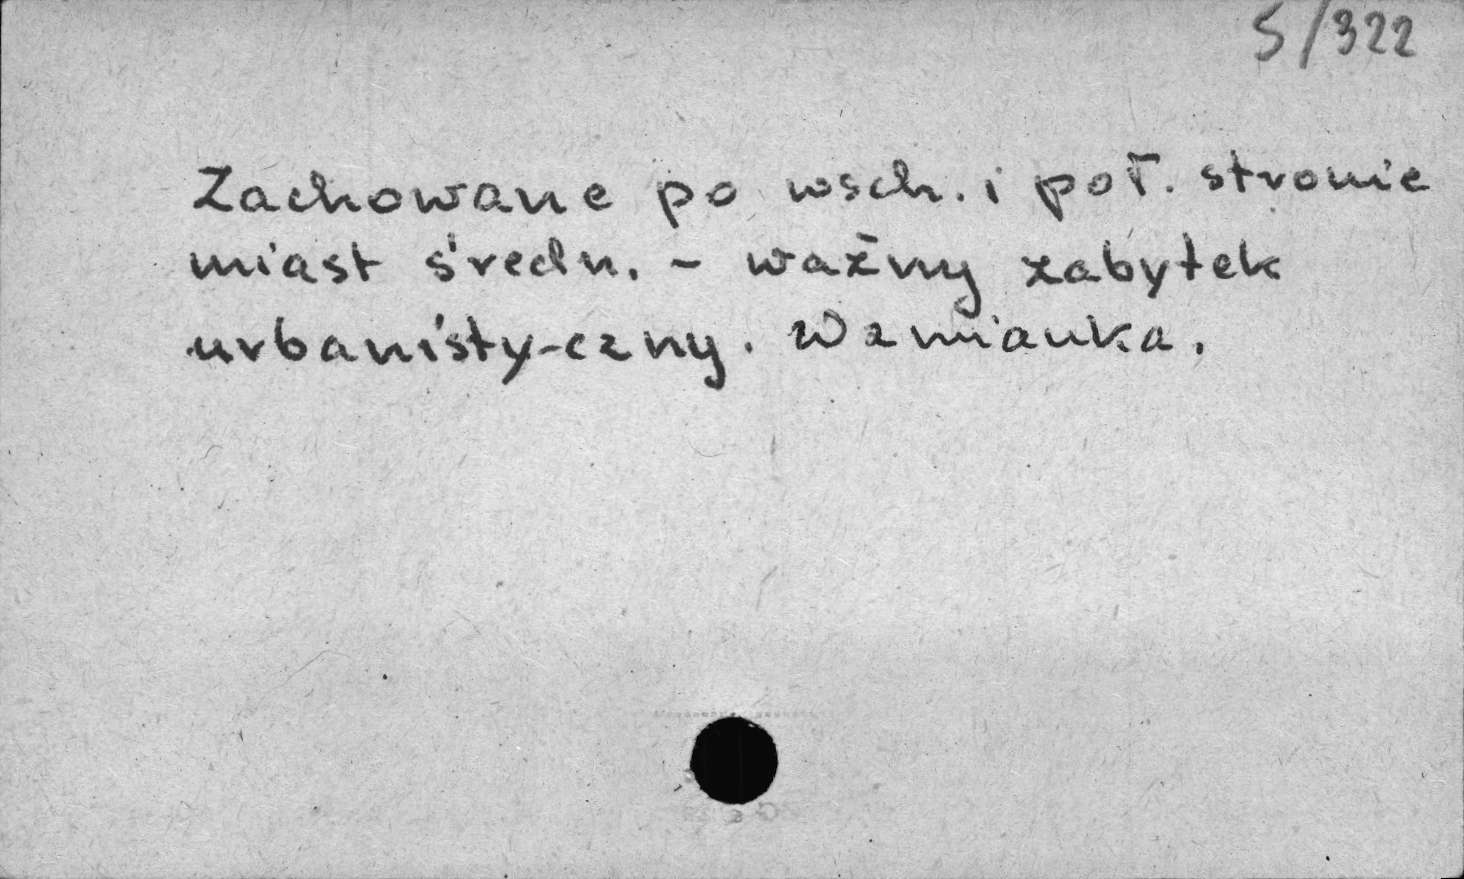 5/322
Zachowane po wsch. i poł. stronie
miast średn. - ważny zabytek
urbanisty-czny. Wzmianka.